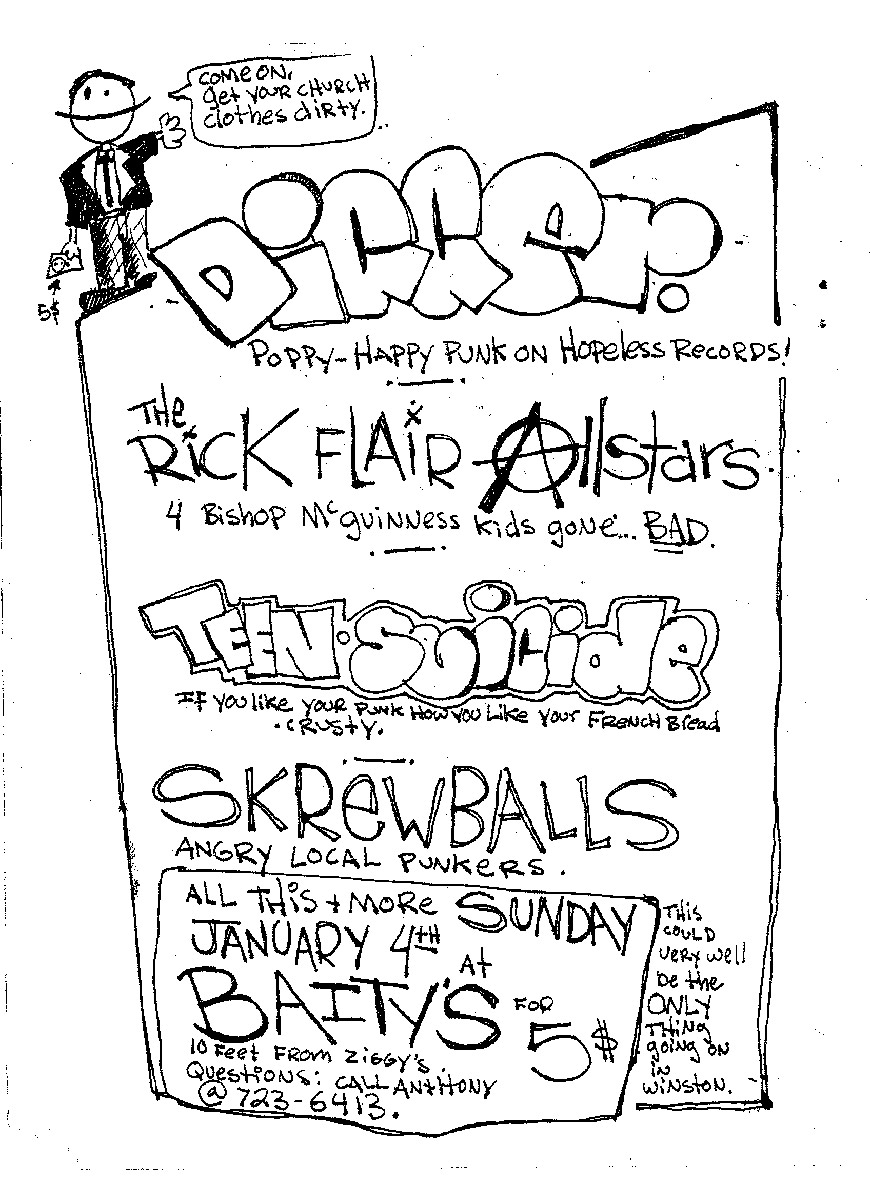 COME ON,
get YOUR CHURCH
clothes dirty.
5¢
Differ.
POPPY-HAPPY PUNK ON HOPELESS RECORDS!
THE
RICK FLAIR Allstars
4 Bishop McGuinness kids gone... BAD.
TEEN·Suicide
IF YOU like YOUR PUNK HOW YOU Like YOUR FRENCH Bread
·CRUSTY.
SKREWBALLS
ANGRY LOCAL PUNKERS.
ALL THiS + MORE SUNDAY
JANUARY 4TH
At
BAITY'S FOR 5$
10 Feet FROM ZIGGY'S.
QUESTIONS: CALL ANTHONY
@ 723-6413.
THIS
COULD
very well
be the
ONLY
THING
going ON
in
WINSTON.